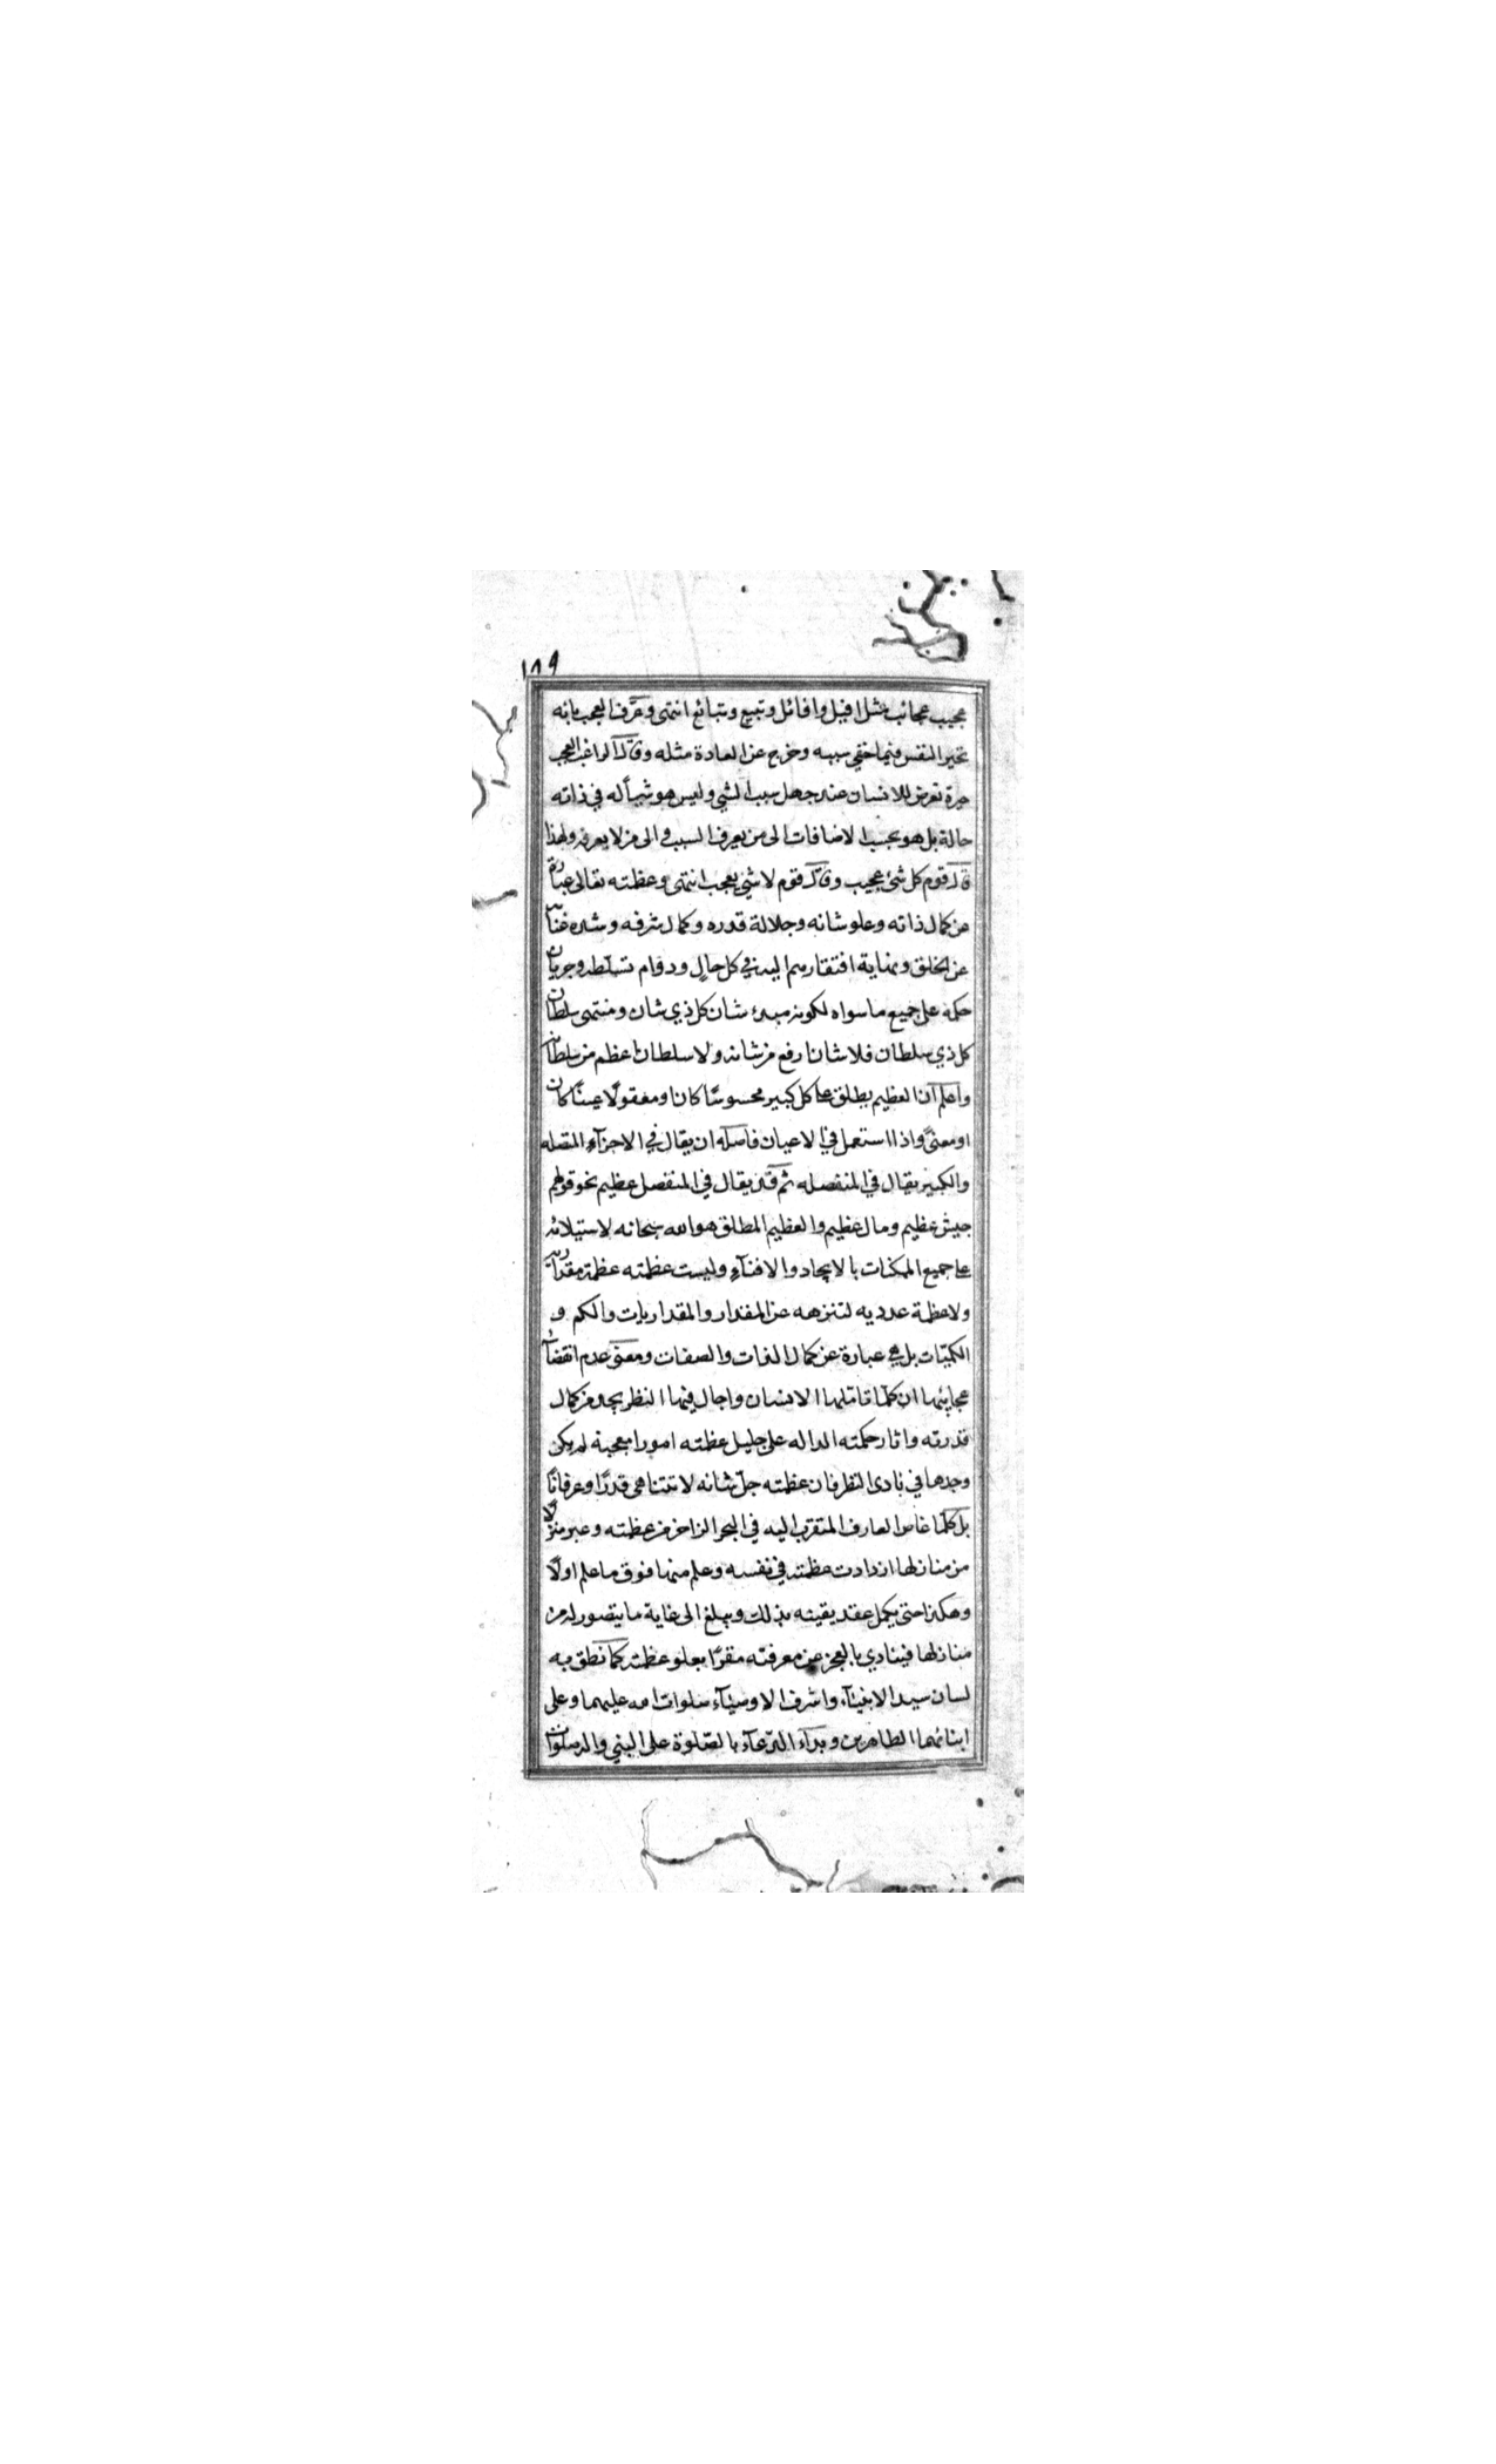 ١٨٩
عجيب عجائب مثل افيل وافائل وتبيع وتبائع انتهى وعرّف العجب بانه
تحير النفس فيما خفي سببه وخرج عن العادة مثله وقال الراغب العجب
حيرة تعرض للانسان عند جهل سبب الشي وليس هو شيأ له في ذاته
حالة بل هو بحسب الاضافات الى من يعرف السبب والى من لا يعرفه ولهذا
قال قوم كل شئ عجيب وقال قوم لا شي يعجب انتهى وعظمته تعالى عبارة
عن كمال ذاته وعلو شانه وجلالة قدره وكمال شرفه وشدة غناه
عن الخلق ونهاية افتقارهم اليه في كل حالٍ ودوام تسلطه وجريان
حكمه على جميع ما سواه لكونه مبدء شان كل ذي شان ومنتهى سلطان
كل ذي سلطان فلا شان ارفع من شانه ولا سلطان اعظم من سلطانه
واعلم ان العظيم يطلق على كل كبير محسوسًا كان او معقولًا عينًا كان
او معنىً واذا استعمل في الاعيان فاصله ان يقال في الاجزآء المتصله
والكبير يقال في المنفصله ثم قد يقال في المنفصل عظيم نحو قولهم
جيش عظيم ومال عظيم والعظيم المطلق هو الله سبحانه لاستيلائه
على جميع الممكنات بالايجاد والافنآءِ وليست عظمته عظمة مقدارية
ولا عظمة عدديه لتنزهه عن المقدار والمقداريات والكم و
الكميّات بل هي عبارة عن كمال الذات والصفات ومعنى عدم انقضآء
عجايبها ان كلّما تاملها الانسان واجال فيها النظر يجد من كمال
قدرته واثار حكمته الداله على جليل عظمته امورا معجبة لم يكن
وجدها في بادى النظر فان عظمته جلّ شانه لا تتناهى قدرًا وعرفانًا
بل كلّما غاص العارف المتقرب اليه في البحر الزاخر من عظمته وعبر منزلًا
من منازلها ازدادت عظمته في نفسه وعلم منها فوق ما علم اولًا
وهكذا حتى يكمل عقد يقينه بذلك ويبلغ الى غاية ما يتصور له من
منازلها فينادي بالعجز عن معرفته مقرًا بعلو عظمته كما نطق به
لسان سيد الانبيآء واشرف الاوصيآء صلوات الله عليهما وعلى
ابنائهما الطاهرين وبدآء الدّعآء بالصّلوة على النبي واله صلوات